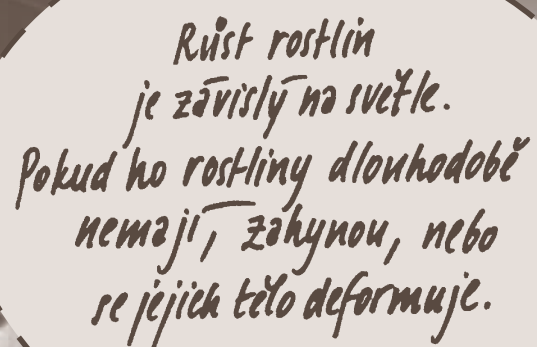 Růst rostlin
je závislý na světle.
Pokud ho rostliny dlouhodobě
nemají, zahynou, nebo
se jejich tělo deformuje.